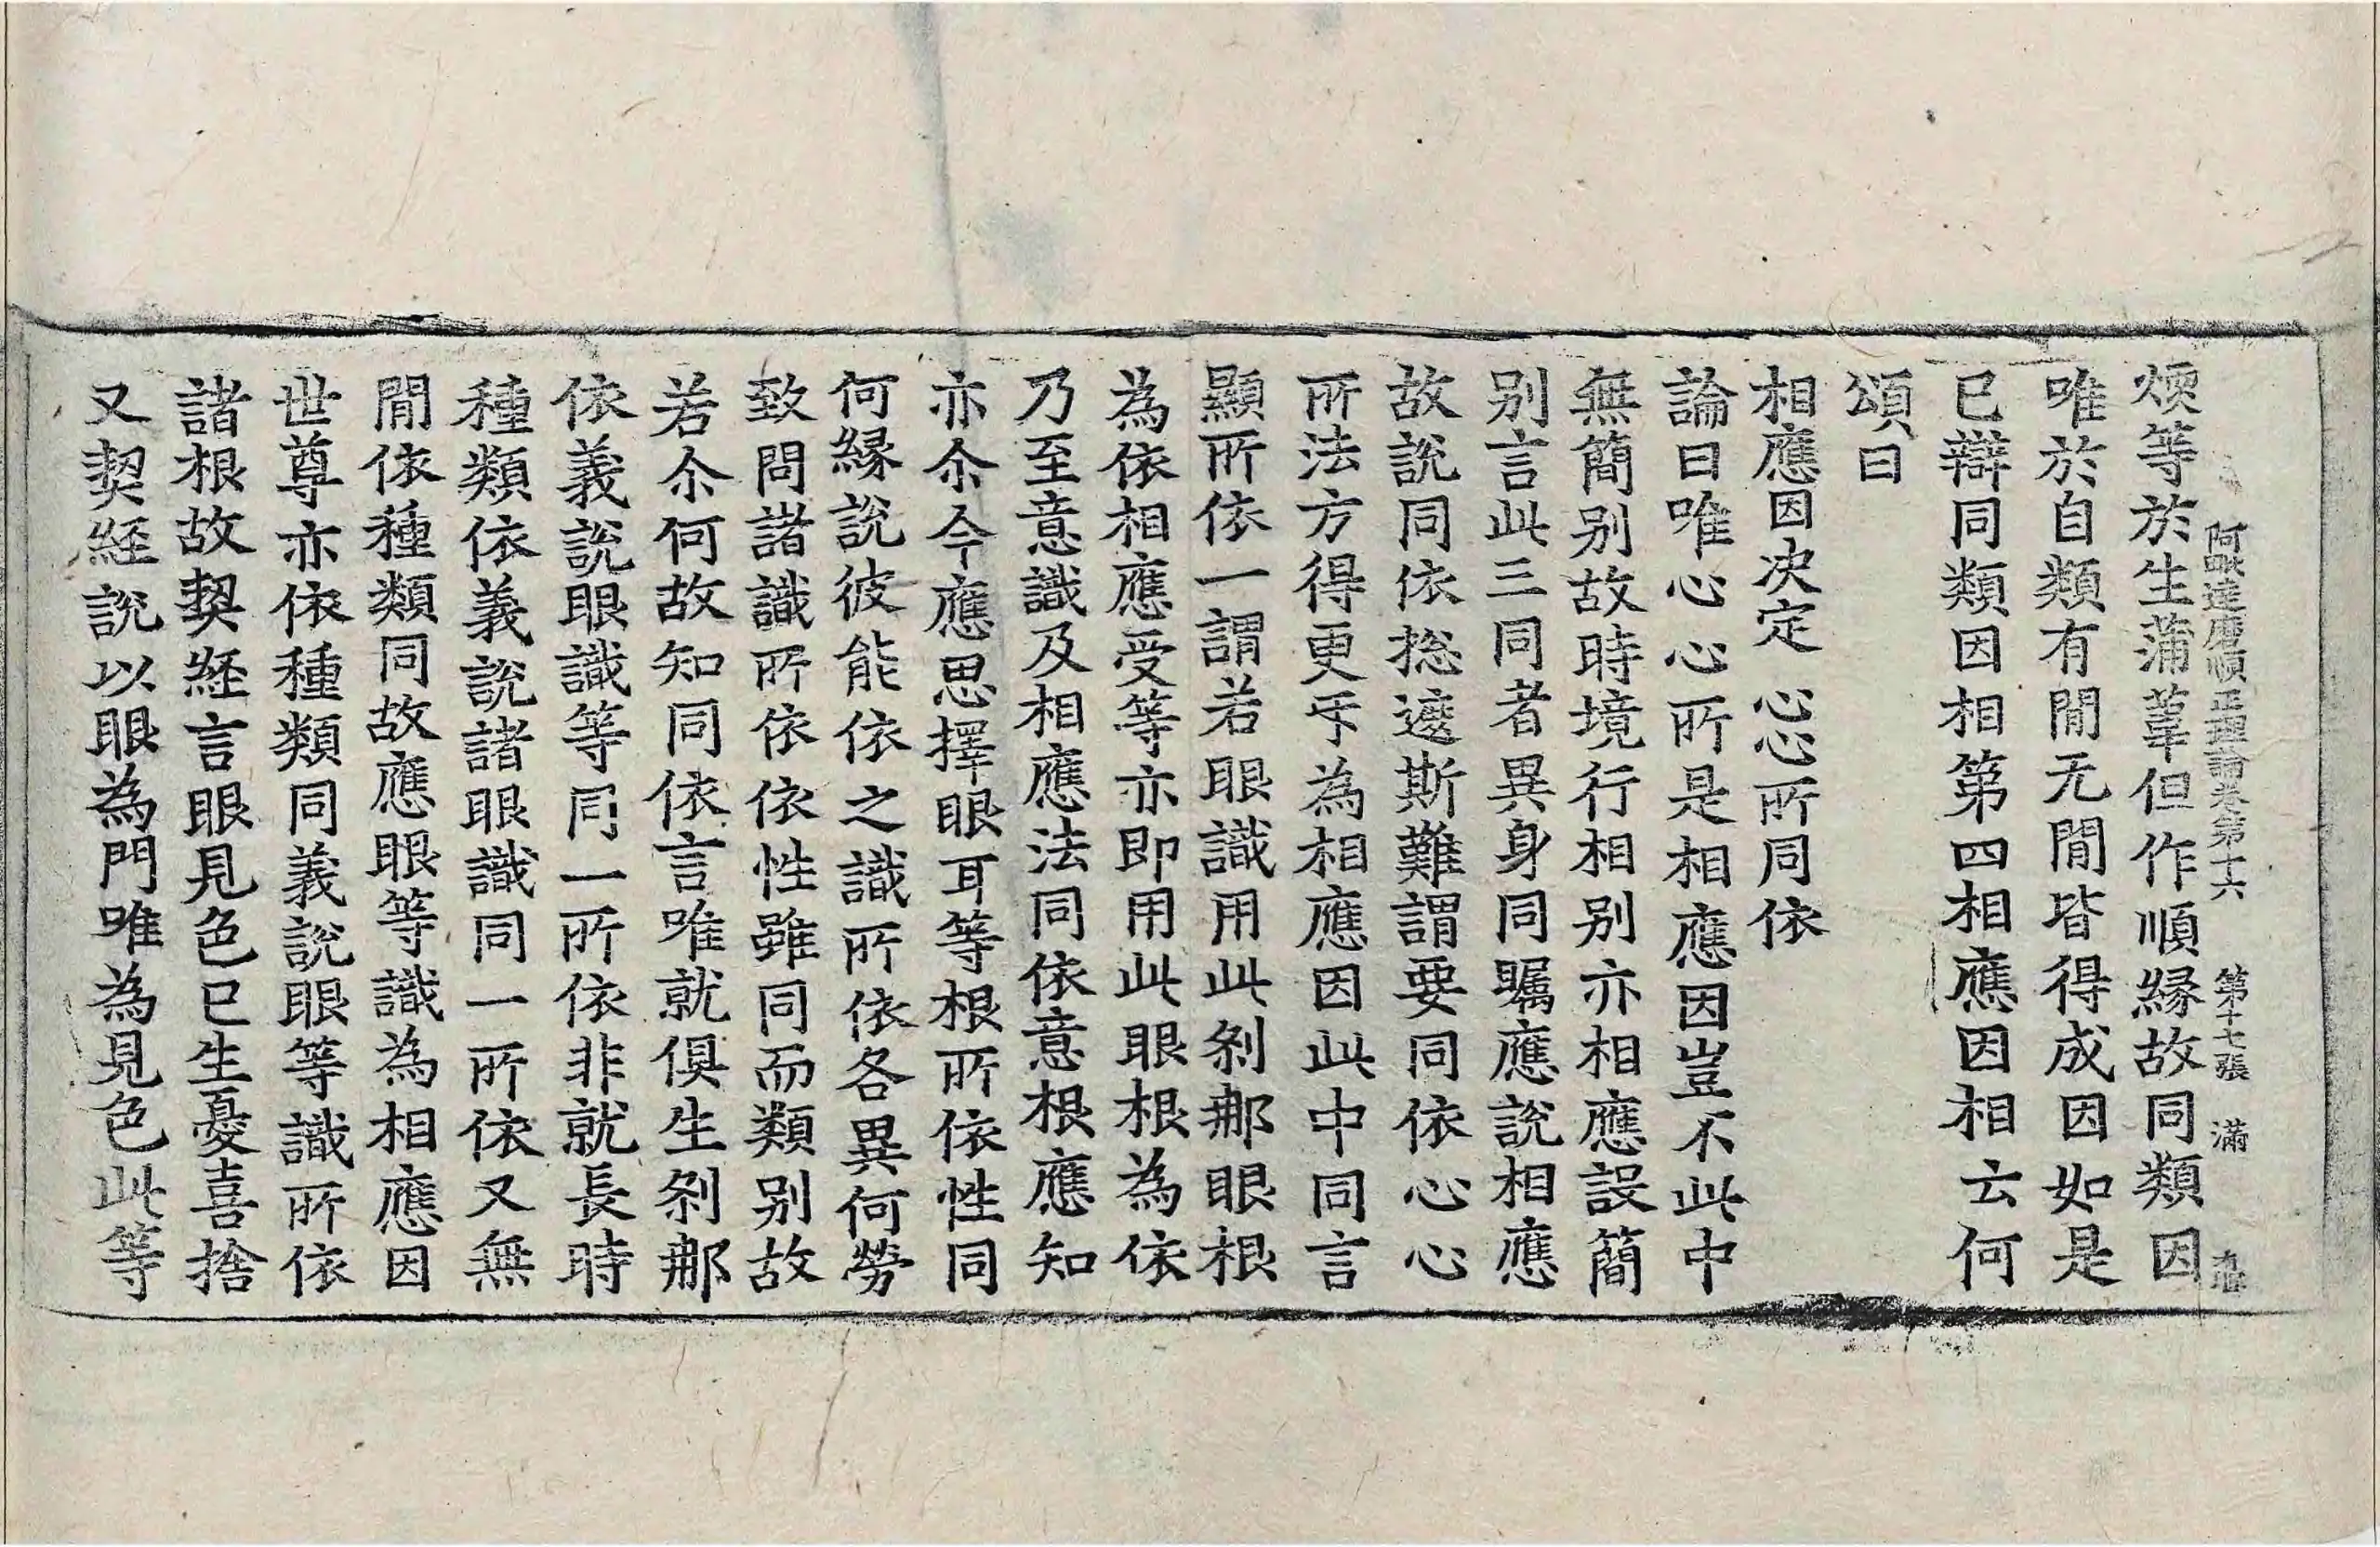 阿毗達磨順正理論卷第十六　第十七張　滿
煗等於生蒲葦但作順縁故同類因
唯於自類有閒无閒皆得成因如是
已辯同類因相第四相應因相云何
頌曰
相應因決定　心心所同依
論曰唯心心所是相應因豈不此中
無簡别故時境行相别亦相應設簡
别言此三同者異身同矚應說相應
故說同依捴遮斯難謂要同依心心
所法方得更㸦為相應因此中同言
顯所依一謂若眼識用此剎那眼根
為依相應受等亦即用此眼根為依
乃至意識及相應法同依意根應知
亦尒今應思擇眼耳等根所依性同
何縁說彼能依之識所依各異何勞
致問諸識所依依性雖同而類别故
若尒何故知同依言唯就俱生剎那
依義說眼識等同一所依非就長時
種類依義說諸眼識同一所依又無
閒依種類同故應眼等識為相應因
世尊亦依種類同義說眼等識所依
諸根故契経言眼見色已生憂喜捨
又契経說以眼為門唯為見色此等